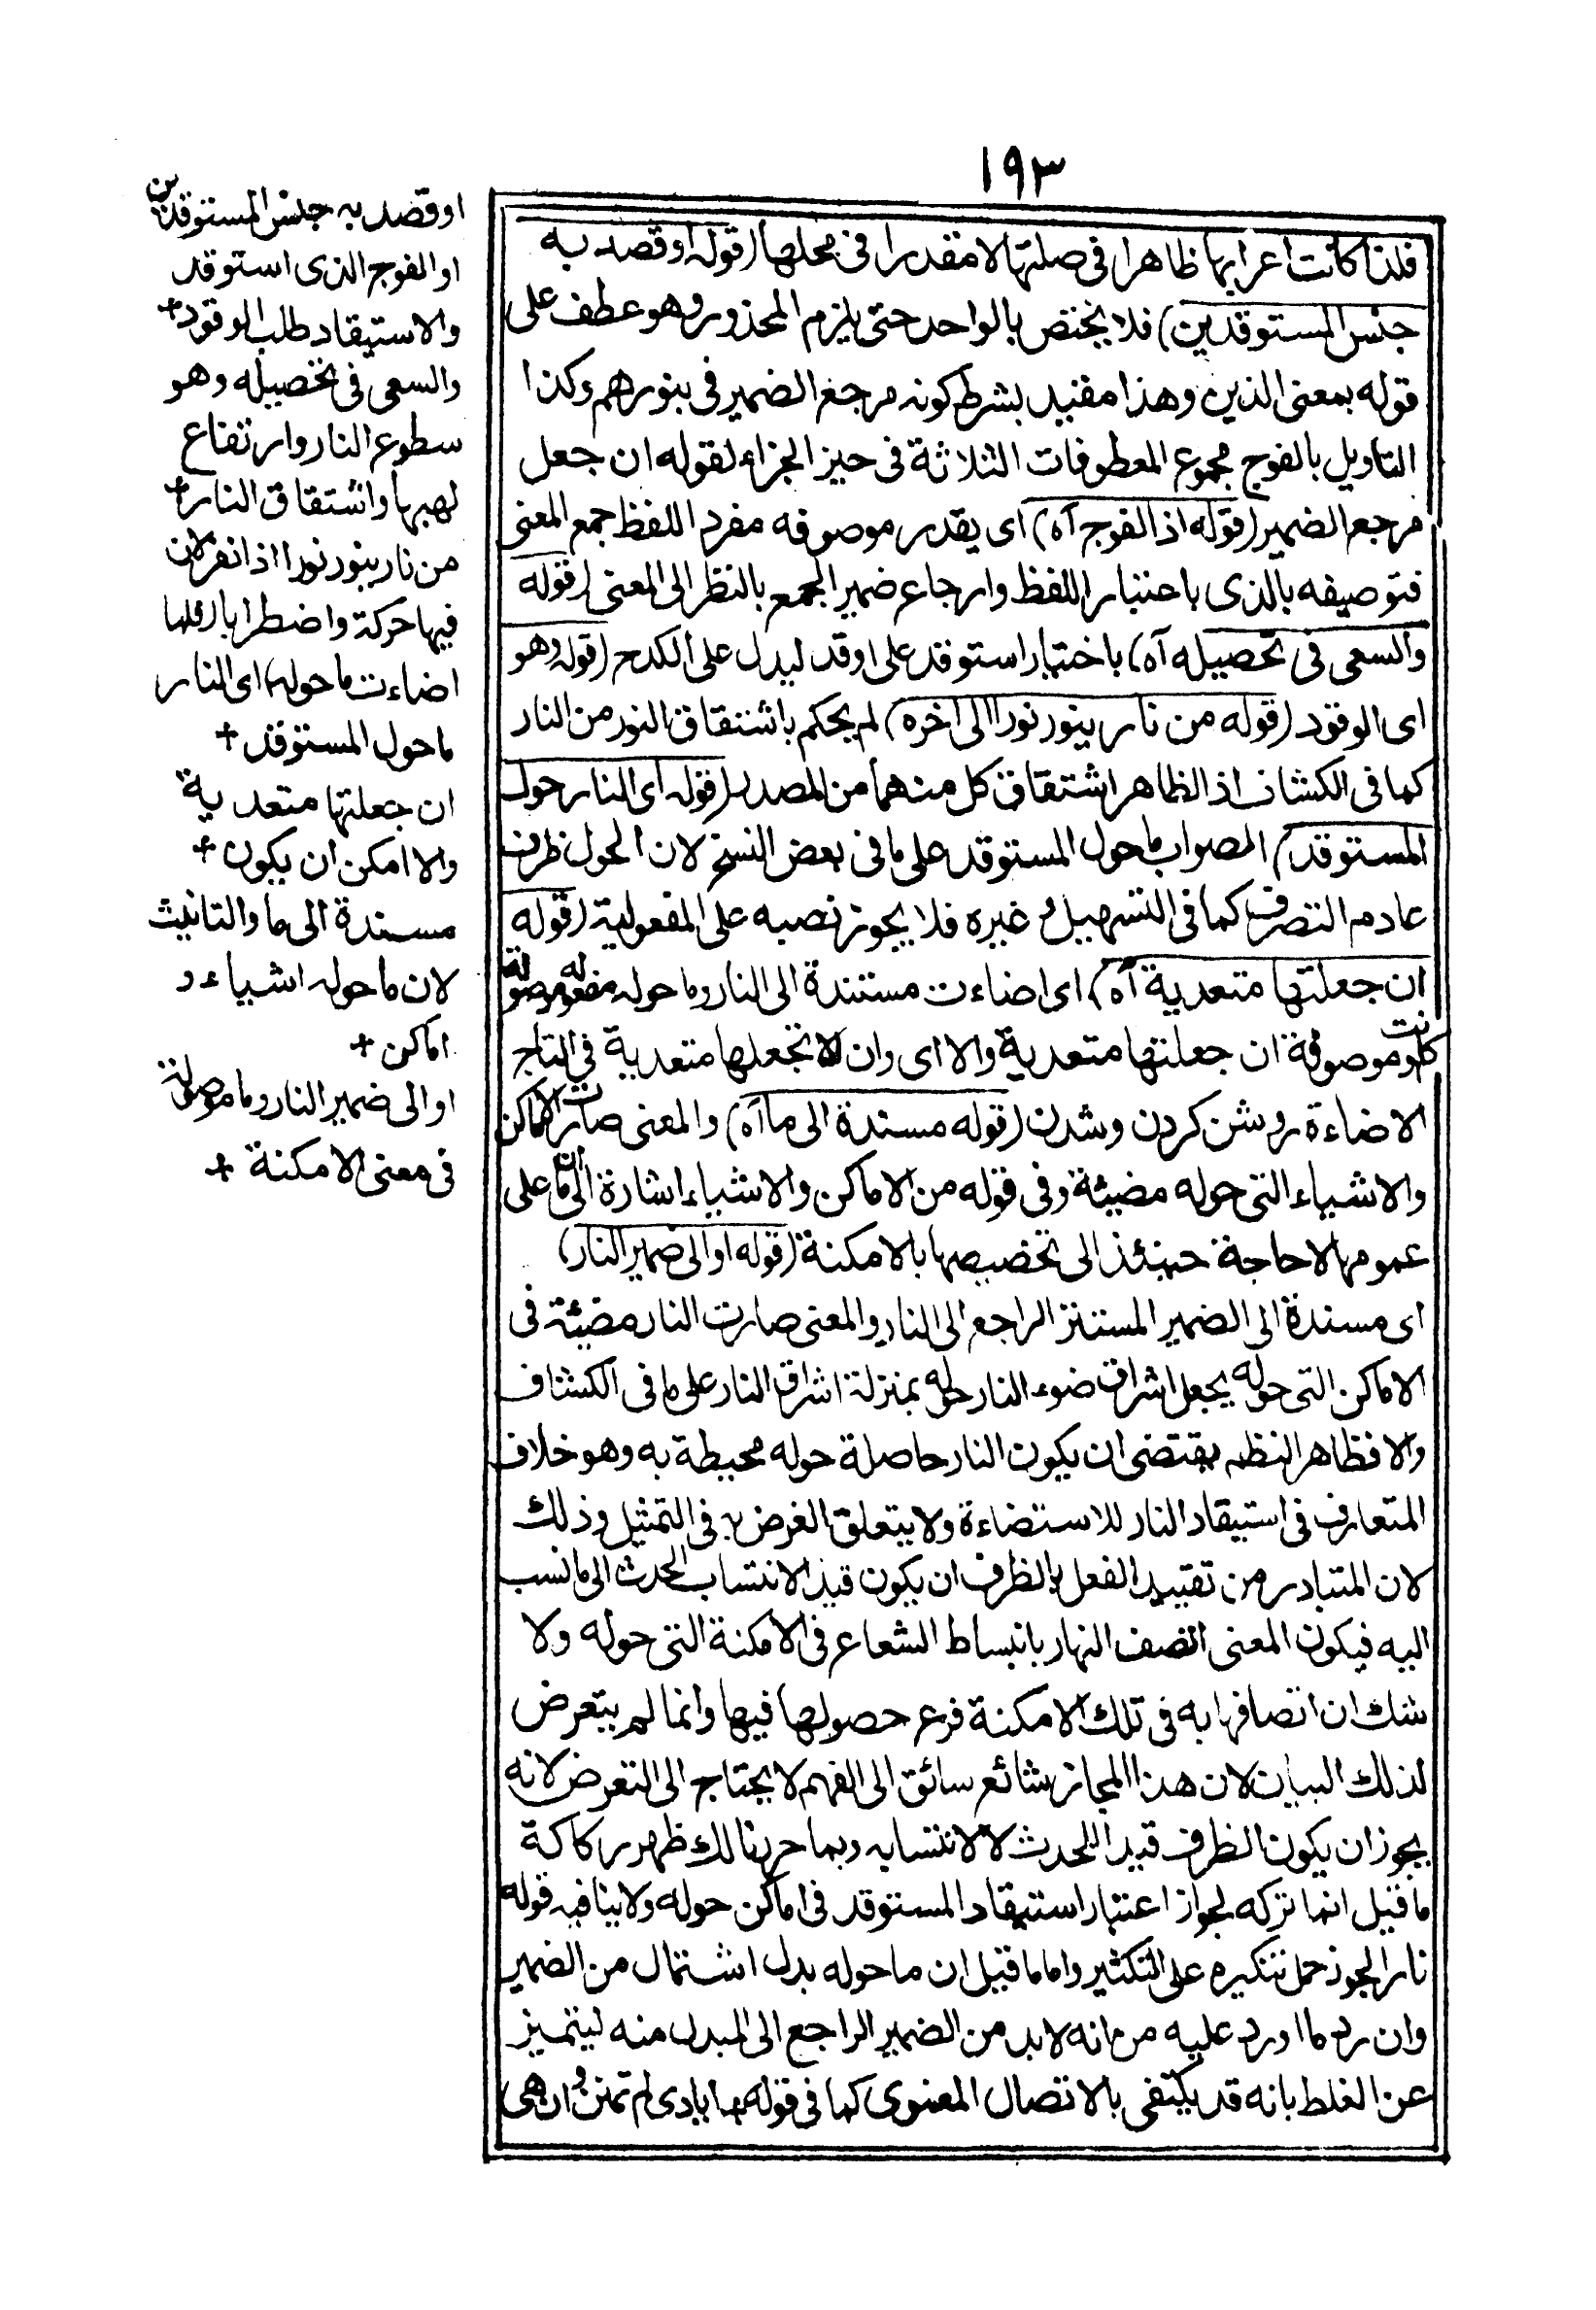 ١٩٣
فلذا كانت اعرابها ظاهرا فى صلتها لا مقدرا فى محلها (قوله او قصد به
جنس المستوقدين) فلا يختص بالواحد حتى يلزم المحذور وهو عطف على
قوله بمعنى الذين وهذا مقيد بشرط كونه مرجع الضمير فى بنورهم وكذا
التاويل بالفوج مجموع المعطوفات الثلاثة فى حيز الجزاء لقوله ان جعل
مرجع الضمير (قوله اذ الفوج آه) اى يقدر موصوفه مفرد اللفظ جمع المعنى
فتوصيفه بالذى باعتبار اللفظ وارجاع ضمير الجمع بالنظر الى المعنى (قوله
والسعى فى تحصيله آه) باختيار استوقد على اوقد ليدل على الكدح (قوله وهو
اى الوقود (قوله من نار ينور نورا الى اخره) لم يحكم باشتقاق النور من النار
كما فى الكشاف اذ الظاهر اشتقاق كل منهما من المصدر (قوله اى النار حول
المستوقد) الصواب ما حول المستوقد على ما فى بعض النسخ لان الحول ظرف
عادم التصرف كما فى التسهيل وغيره فلا يجوز نصبه على المفعولية (قوله
ان جعلتها متعدية آه) اى اضاءت مستندة الى النار وما حوله مفعوله موصولة
كانت او موصوفة ان جعلتها متعدية والا اى وان لا تجعلها متعدية فى التاج
الاضاءة روشن كردن وشدن (قوله مسندة الى ما آه) والمعنى صارت الاماكن
والاشياء التى حوله مضيئة وفى قوله من الاماكن والاشياء اشارة الى ان ما على
عمومها لا حاجة حينئذ الى تخصيصها بالامكنة (قوله او الى ضمير النار)
اى مسندة الى الضمير المستتر الراجع الى النار والمعنى صارت النار مضيئة فى
الاماكن التى حوله يجعل اشراق ضوء النار حوله بمنزلة اشراق النار على ما فى الكشاف
والا فظاهر النظم يقتضى ان يكون النار حاصلة حوله محيطة به وهو خلاف
المتعارف فى استيقاد النار للاستضاءة ولا يتعلق الغرض به فى التمثيل وذلك
لان المتبادر من تقييد الفعل بالظرف ان يكون قيد الانتساب الحدث الى ما نسب
اليه فيكون المعنى اتصف النهار بانبساط الشعاع فى الامكنة التى حوله ولا
شك ان اتصافها به فى تلك الامكنة فرع حصولها فيها وانما لم يتعرض
لذلك البيان لان هذا المجاز شائع سائق الى الفهم لا يحتاج الى التعرض لانه
يجوز ان يكون الظرف قيد اللحدث لا لانتسابه وبما حررنا لك ظهر ركاكة
ما قيل انما تركه لجواز اعتبار استيقاد المستوقد فى اماكن حوله ولا ينافيه قوله
نارا لجوز حمل تنكيره على التكثير واما ما قيل ان ما حوله بدل اشتمال من الضمير
وان رد ما اورد عليه من انه لا بد من الضمير الراجع الى المبدل منه ليتميز
عن الغلط بانه قد يكتفى بالاتصال المعنوى كما فى قوله ايادى لم تمنن وان هى
او قصد به جنس المستوقدين
او الفوج الذى استوقد
والاستيقاد طلب الوقود +
والسعى فى تحصيله وهو
سطوع النار وارتفاع
لهبها واشتقاق النار +
من نار ينور نورا اذا نفر لان
فيها حركة واضطرابا (فلما
اضاءت ما حوله) اى النار
ما حول المستوقد +
ان جعلتها متعدية
والا امكن ان يكون +
مسندة الى ما والتانيث
لان ما حوله اشياء و
اماكن +
او الى ضمير النار وما موصولة
فى معنى الامكنة +